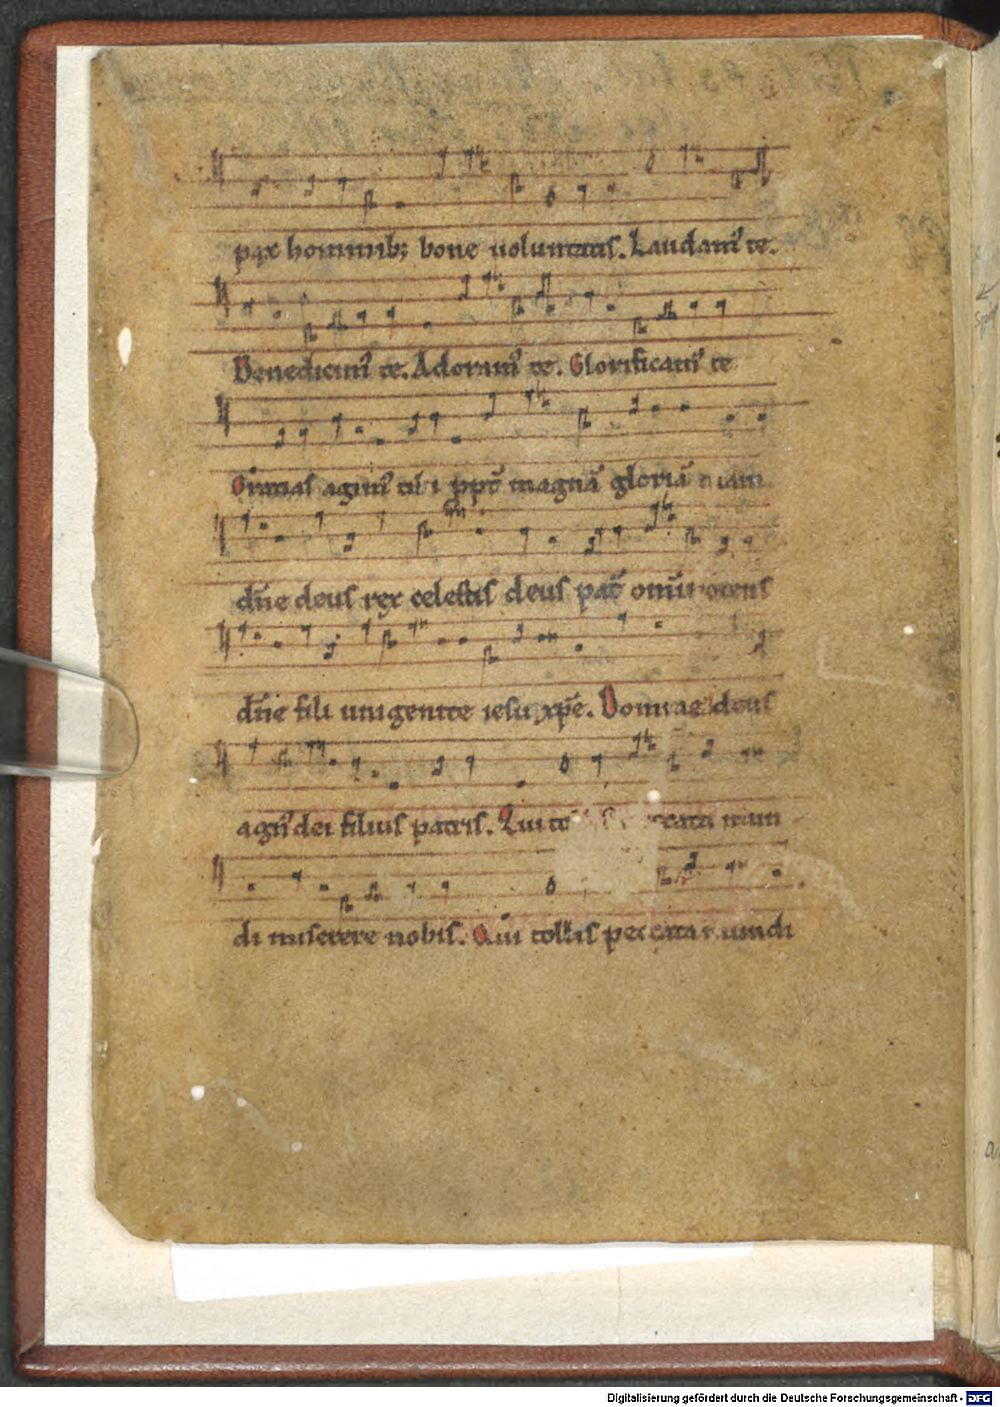 pax hominib; bone uoluntatis. Laudam᾽ te.
Benedicim᾽ te. Adoram᾽ te. Glorificam᾽ te
Gratias agim᾽ tibi ppt̄ magnā gloriā tuam
dn̄e deus rex celestis deus pat̄ om̄ipotens
dn̄e fili unigenite iesu xp̄e. Domine deus
agn᾽ dei filius patris. Qui peccata mun
di miserere nobis. Qui tollis peccata mundi
Digitalisierung gefördert durch die Deutsche Forschungsgemeinschaft - DFG